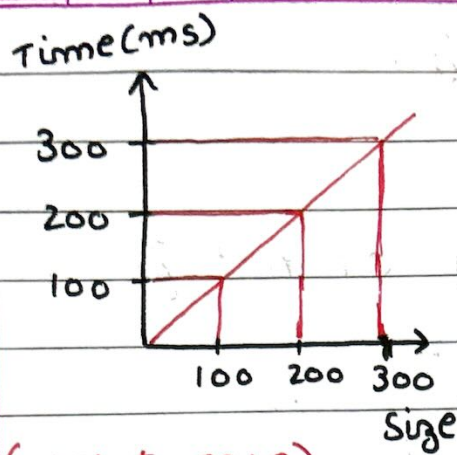 Time(ms)
300
200
100
100 200 300
Size